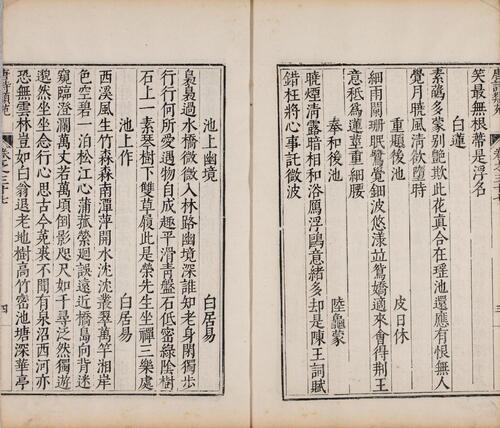 笑最無根蒂是浮名
白蓮
素蘤多蒙别艶欺此花真合在瑤池還應有恨無人
覺月曉風清欲墮時
重題後池 皮日休
細雨闌珊眠鷺覺鈿波悠漾並鴛嬌適來會得荆王
意秪為蓮莖重細腰
奉和後池 陸龜蒙
曉煙清露暗相和浴鴈浮鷗意緒多却是陳王詞賦
錯枉將心事託微波
池上幽境 白居易
裊裊過水橋微微入林路幽境深誰知老身閑獨步
行行何所愛遇物自成趣平滑青盤石低密綠陰樹
石上一素琴樹下雙草屨此是榮先生坐禪三樂處
池上作 白居易
西溪風生竹森森南潭萍開水沈沈叢翠萬竿湘岸
色空碧一泊松江心蒲菰縈迴誤遠近橋島向背迷
窺臨澄瀾萬丈若萬頃倒影咫尺如千尋泛然獨遊
邈然坐坐念行心思古今菟裘不聞有泉沼西河亦
恐無雲林豈如白翁退老地樹高竹密池塘深華亭
唐詩類苑 卷之三十七 四